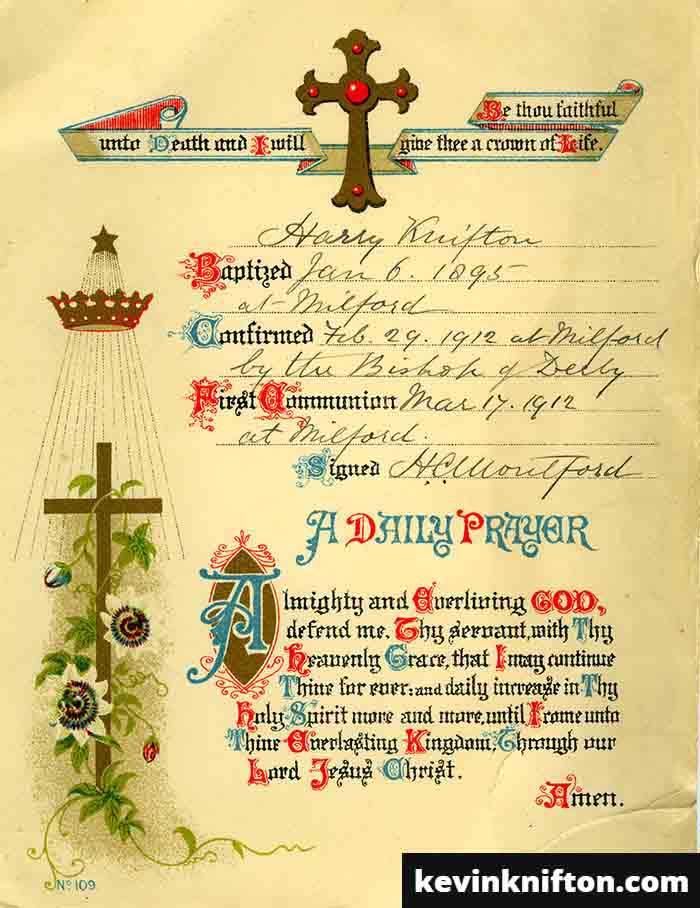 Be thou faithful
unto Death and I will give thee a crown of Life.
Harry Knifton
Baptized Jan 6. 1895
at Milford
Confirmed Feb. 29. 1912 at Milford
by the Bishop of Derby
First Communion Mar 17. 1912
at Milford.
Signed H.C. Montford
A DAILY PRAYER
Almighty and Everliving GOD,
defend me, Thy servant, with Thy
Heavenly Grace, that I may continue
Thine for ever: and daily increase in Thy
Holy Spirit more and more, until I come unto
Thine Everlasting Kingdom. Through our
Lord Jesus Christ.
Amen.
Nº 109
kevinknifton.com